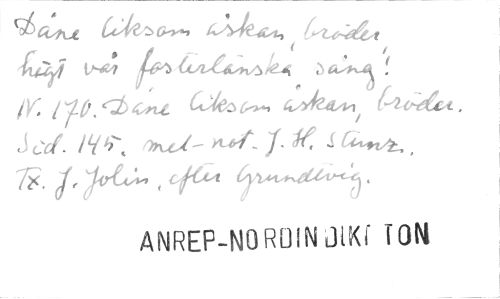 Dåne liksom åskan, bröder,
högt vår fosterländska sång!
N. 170. Dåne liksom åskan, bröder.
Sid. 145. mel-not. J. H. Stunz.
Tx. J. Jolin, efter Grundtvig.
ANREP-NORDIN DIKT TON